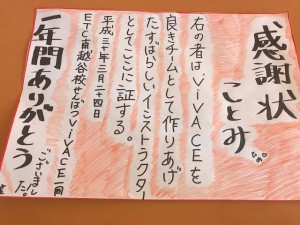 感謝状
ことみ
右の者はViVACEを
良きチームとして作りあげ
たすばらしいインストラクター
としてここに証する。
平成三十年三月二十四日
ETC南越谷校せんばつViVACE一同
一年間ありがとう
ございました。